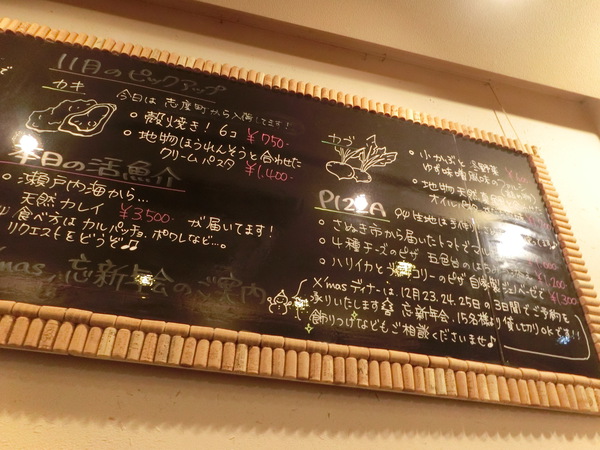 11月のピックアップ
カキ
今日は志度町から入荷してます!
○殻焼き!6コ ¥750-
○地物ほうれんそうと合せた
クリームパスタ ¥1,400-
本日の活魚介
○瀬戸内海から…
天然カレイ ¥3500- が届いてます!
食べ方はカルパッチョ、ポワレなど…。
リクエストをどうぞ♫
X'mas 忘新年会のご案内
カブ
○小かぶと
ゆず味噌風味の
○地物天然真鯛
オイル
PIZZA
○さぬき市から届いたトマトで
○4種チーズのピザ 五色台のはち
¥1,200
○ハリイカと
コリーのピザ 自家製ジェノベーゼで ¥1,300
X'masディナーは、12月23.24.25日の3日間でご予約を
承りいたします 忘新年会、15名様より貸し切りOKです!!
飾りつけなどもご相談くださいませ♪